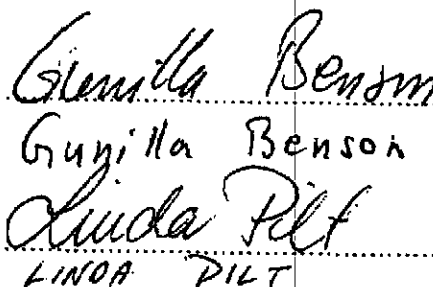 Gunilla Benson
Gunilla Benson
Linda Pilt
LINDA PILT